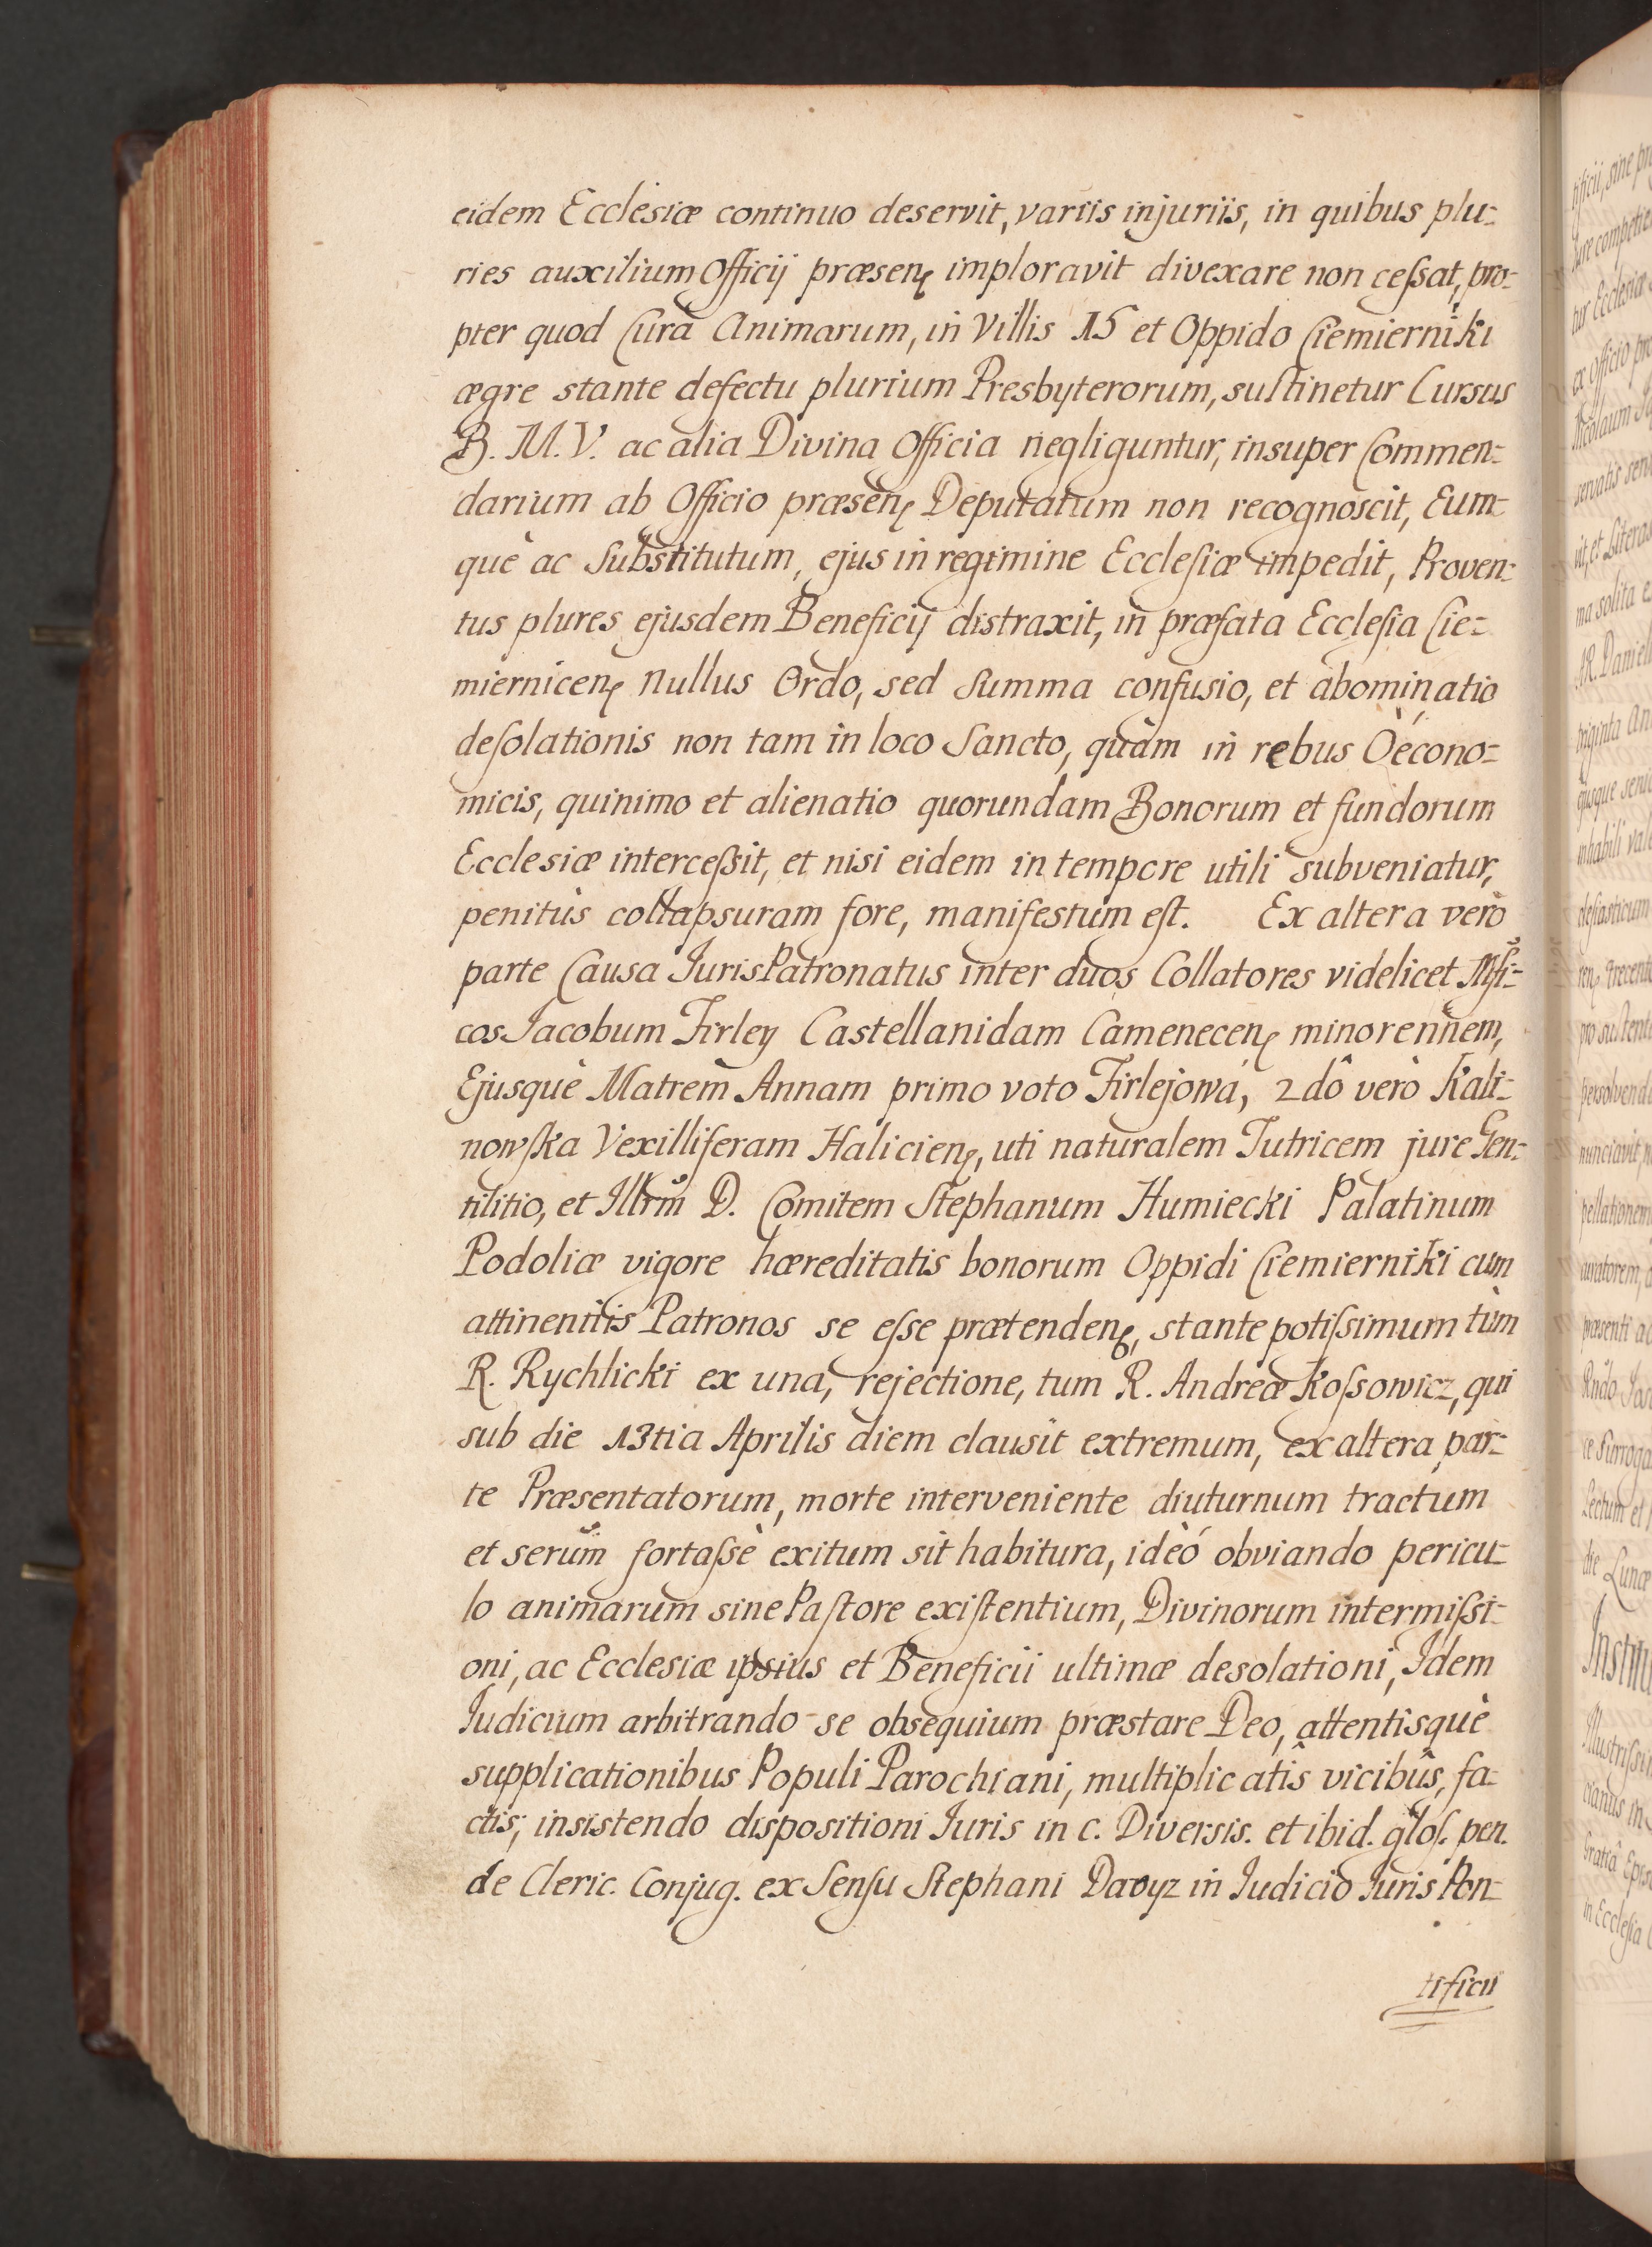 eidem Ecclesiæ continuo deservit, variis injuriis, in quibus plu-
ries auxilium Officij præsenę imploravit divexare non ceſsat, pro-
pter quod Cura Animarum, in Villis 15 et Oppido Ciemierniki
ægre stante defectu plurium Presbyterorum, suſtinetur Cursus
B. M. V. ac alia Divina Officia negliguntur, insuper Commen-
darium ab Officio præsenę Deputatum non recognoscit, Eum-
què ac Substitutum, ejus in regimine Eccleſiæ impedit, Proven-
tus plures ejusdem Beneficij distraxit, in præfata Eccleſia Cie-
miernicenę nullus Ordo, sed Summa confusio, et abominatio
deſolationis non tam in loco Sancto, quàm in rebus Oècono-
micis, quinimo et alienatio quorundam Bonorum et fundorum
Ecclesiæ interceſsit, et nisi eidem in tempore utili subveniatur,
penitùs collapsuram fore, manifestum eſt. Ex altera verò
parte Causa Iuris Patronatus inter duos Collatores videlicet Mſi-
cos Iacobum Firley Castellanidam Camenecenę minorennem,
Ejusquè Matrem Annam primo voto Firlejowá, 2dô verò Kali-
nowſka Vexilliferam Halicienę, uti naturalem Tutricem jure Gen-
tilitio, et Illrm D. Comitem Stephanum Humiecki Palatinum
Podoliæ vigore hæreditatis bonorum Oppidi Ciemierniki cum
attinentiis Patronos se eſse prætendenę, stante potiſsimum tùm
R. Rychlicki ex una, rejectione, tum R. Andreæ Koſsowicz, qui
sub die 13tia Aprilis diem clausit extremum, ex altera par-
te Præsentatorum, morte interveniente diuturnum tractum
et serum fortaſsè exitum sit habitura, ideò obviando pericu-
lo animarum sine Paſtore exiſtentium, Divinorum intermiſsi-
oni, ac Ecclesiæ ipsius et Beneficii ultimæ desolationi, Idem
Iudicium arbitrando se obsequium præstare Deo, attentisquè
supplicationibus Populi Parochiani, multiplicatîs vicibûs, fa-
ctis; insistendo dispositioni Iuris in c. Diversis. et ibid. gloſ. pen.
de Cleric. Conjug. ex Senſu Stephani Davyz in Iudicio Iuris Pon-
tificii